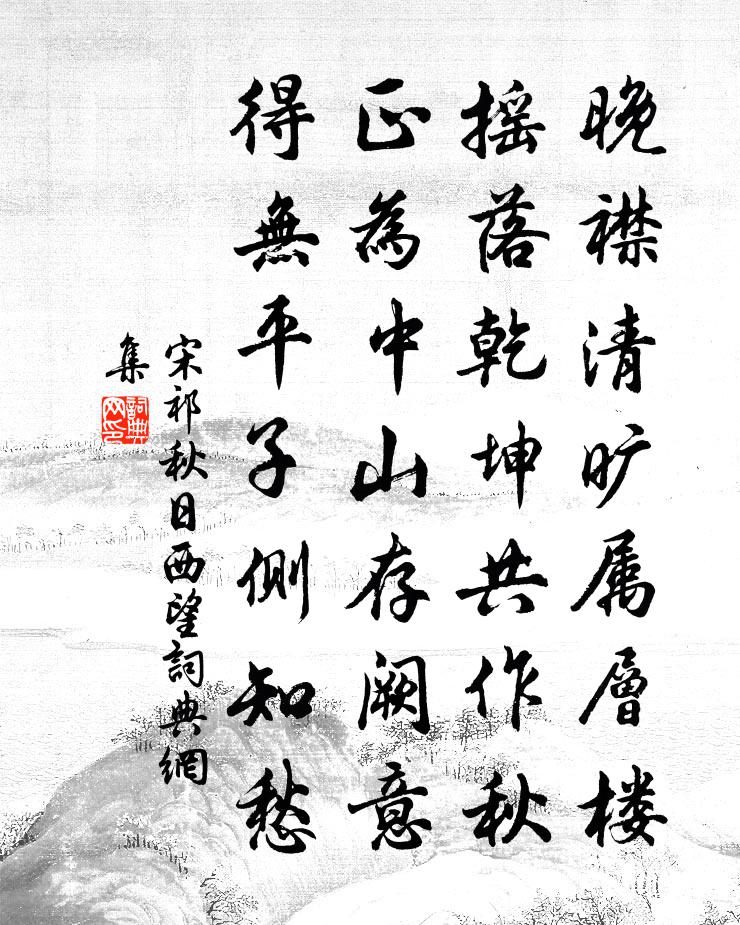 晚襟清旷属层楼
摇落乾坤共作秋
正為中山存阙意
得無平子侧知愁
宋祁秋日西望詞典網
集
詞典
网印